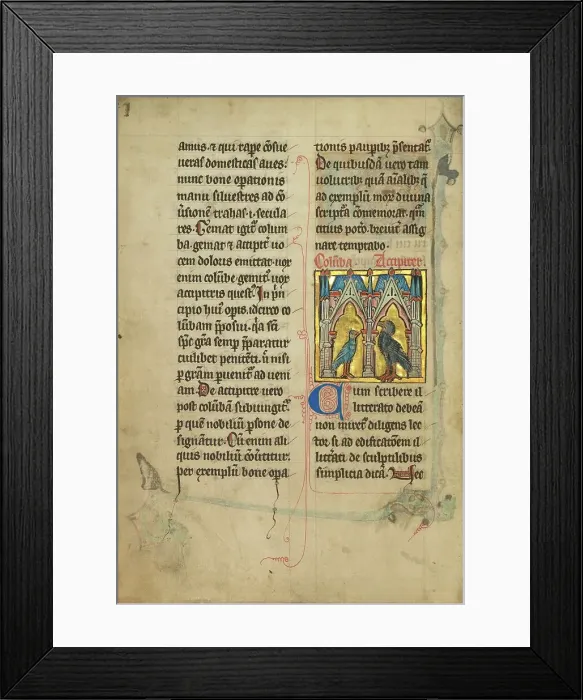 amus. ⁊ qui rape cōsue
ueras domesticas aues.
nunc bone oꝑationis
manu siluestres ad cō
ūsionē trahas .i. secula
res. Gemat igit᷑ colum
ba. gemat ⁊ accipit᷑ uo
cem doloris emittat. uox
enim colūbe gemit᷑. uox
accipitris quest᷑. In p̄n
cipio hui᷑ opis. idcirco co
lūbam ꝓposui. q̄a sc̄i
sp̄c gr̄a semp p̄paratur
cuilibet penitēti. n̄ nisi
p gr̄am ꝑuenit᷑ ad ueni
am. De accipitre uero
post colūbā subiungit᷑.
ꝑ quē nobiliū ꝑsone de
signātur. Cū enim ali
quis nobiliū cōūtitur.
per exemplū bone oꝑa
tionis pauꝑibꝫ p̄sentat᷑.
De quibusdā uero tam
uolucribꝫ quā aīalibꝫ q̄
ad exemplū moꝝ diuina
scriptā cōmemorat. qm̄
citius poto. breuit᷑ assig
nare temptabo.
Colūba Accipiter.
Cum scribere il
litterato debeā
non miret᷑ diligens lec
tor. si ad edificatōem il
litt̄ati de sculptilibus
simplicia dicā. Nec